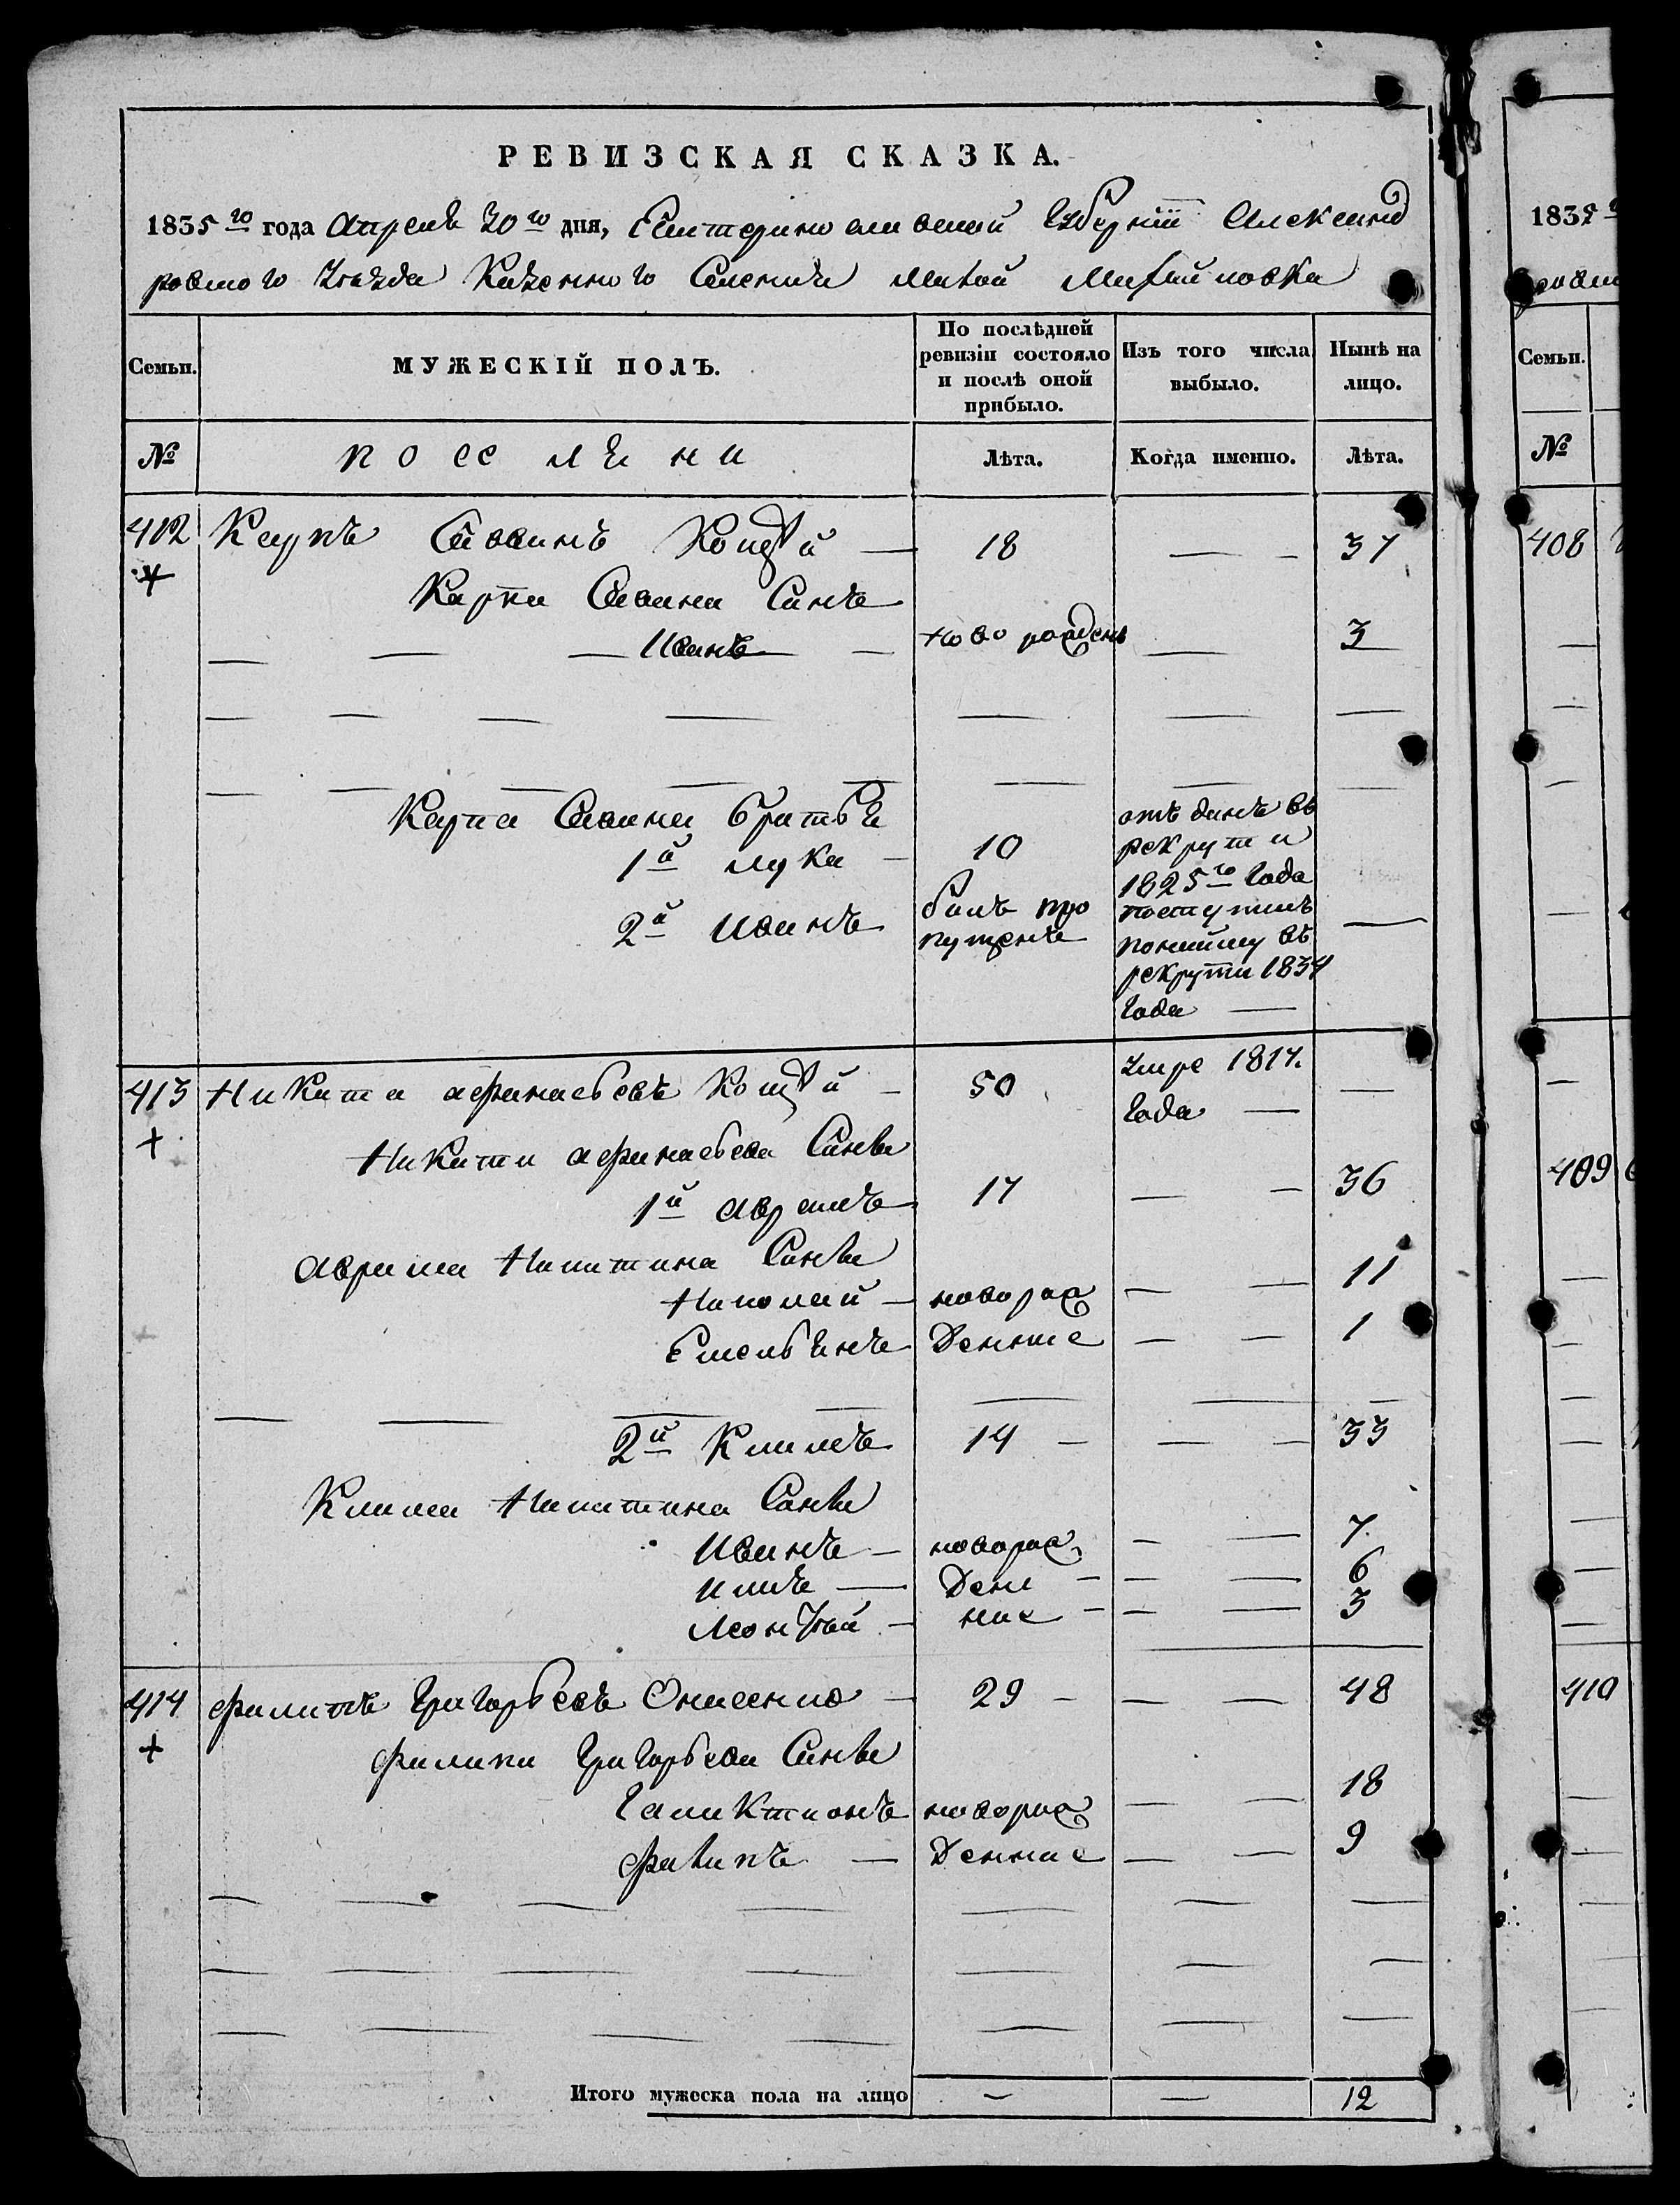 РЕВИЗСКАЯ СКАЗКА.
1835 го года Апреля 30 го дня, Екатеринославской Губернiи Александ
ровского Уѣзда Казенного Селения Малой Михайловка
Семьи.
МУЖЕСКІЙ ПОЛЪ.
По послѣдней ревизіи состояло и послѣ оной прибыло.
Изъ того числа выбыло.
Нынѣ на лицо.
№
поселяни
Лѣта.
Когда именно.
Лѣта.
412 Карпъ Саввинъ 18 37
Карпа Савина Синъ
Иванъ ново рожденъ 3
Карпа Савина братья
1й лука 10 отъ данъ въ рекрути 1825 го Года
2й Иванъ билъ про пущенъ поступилъ понайму въ рекрути 1834 Года
413 Никита афанасьевъ 50 умре 1817. Года
Никити афанасьева Синьи
1й аврамъ 17 36
аврама Никитина Синьи
Николай новорож 11
Емельянъ Денние 1
2й Климъ 14 33
Клима Никитина Синьи
Иванъ новорож 7
илия Денн 6
Леонтѣй ние 3
414 филипъ Григорьевъ 29 48
филипа Григорьева Синьи
Галактионъ новорож 18
филипъ Денние 9
Итого мужеска пола на лицо 12
1835
Семьи.
№
408
409
410